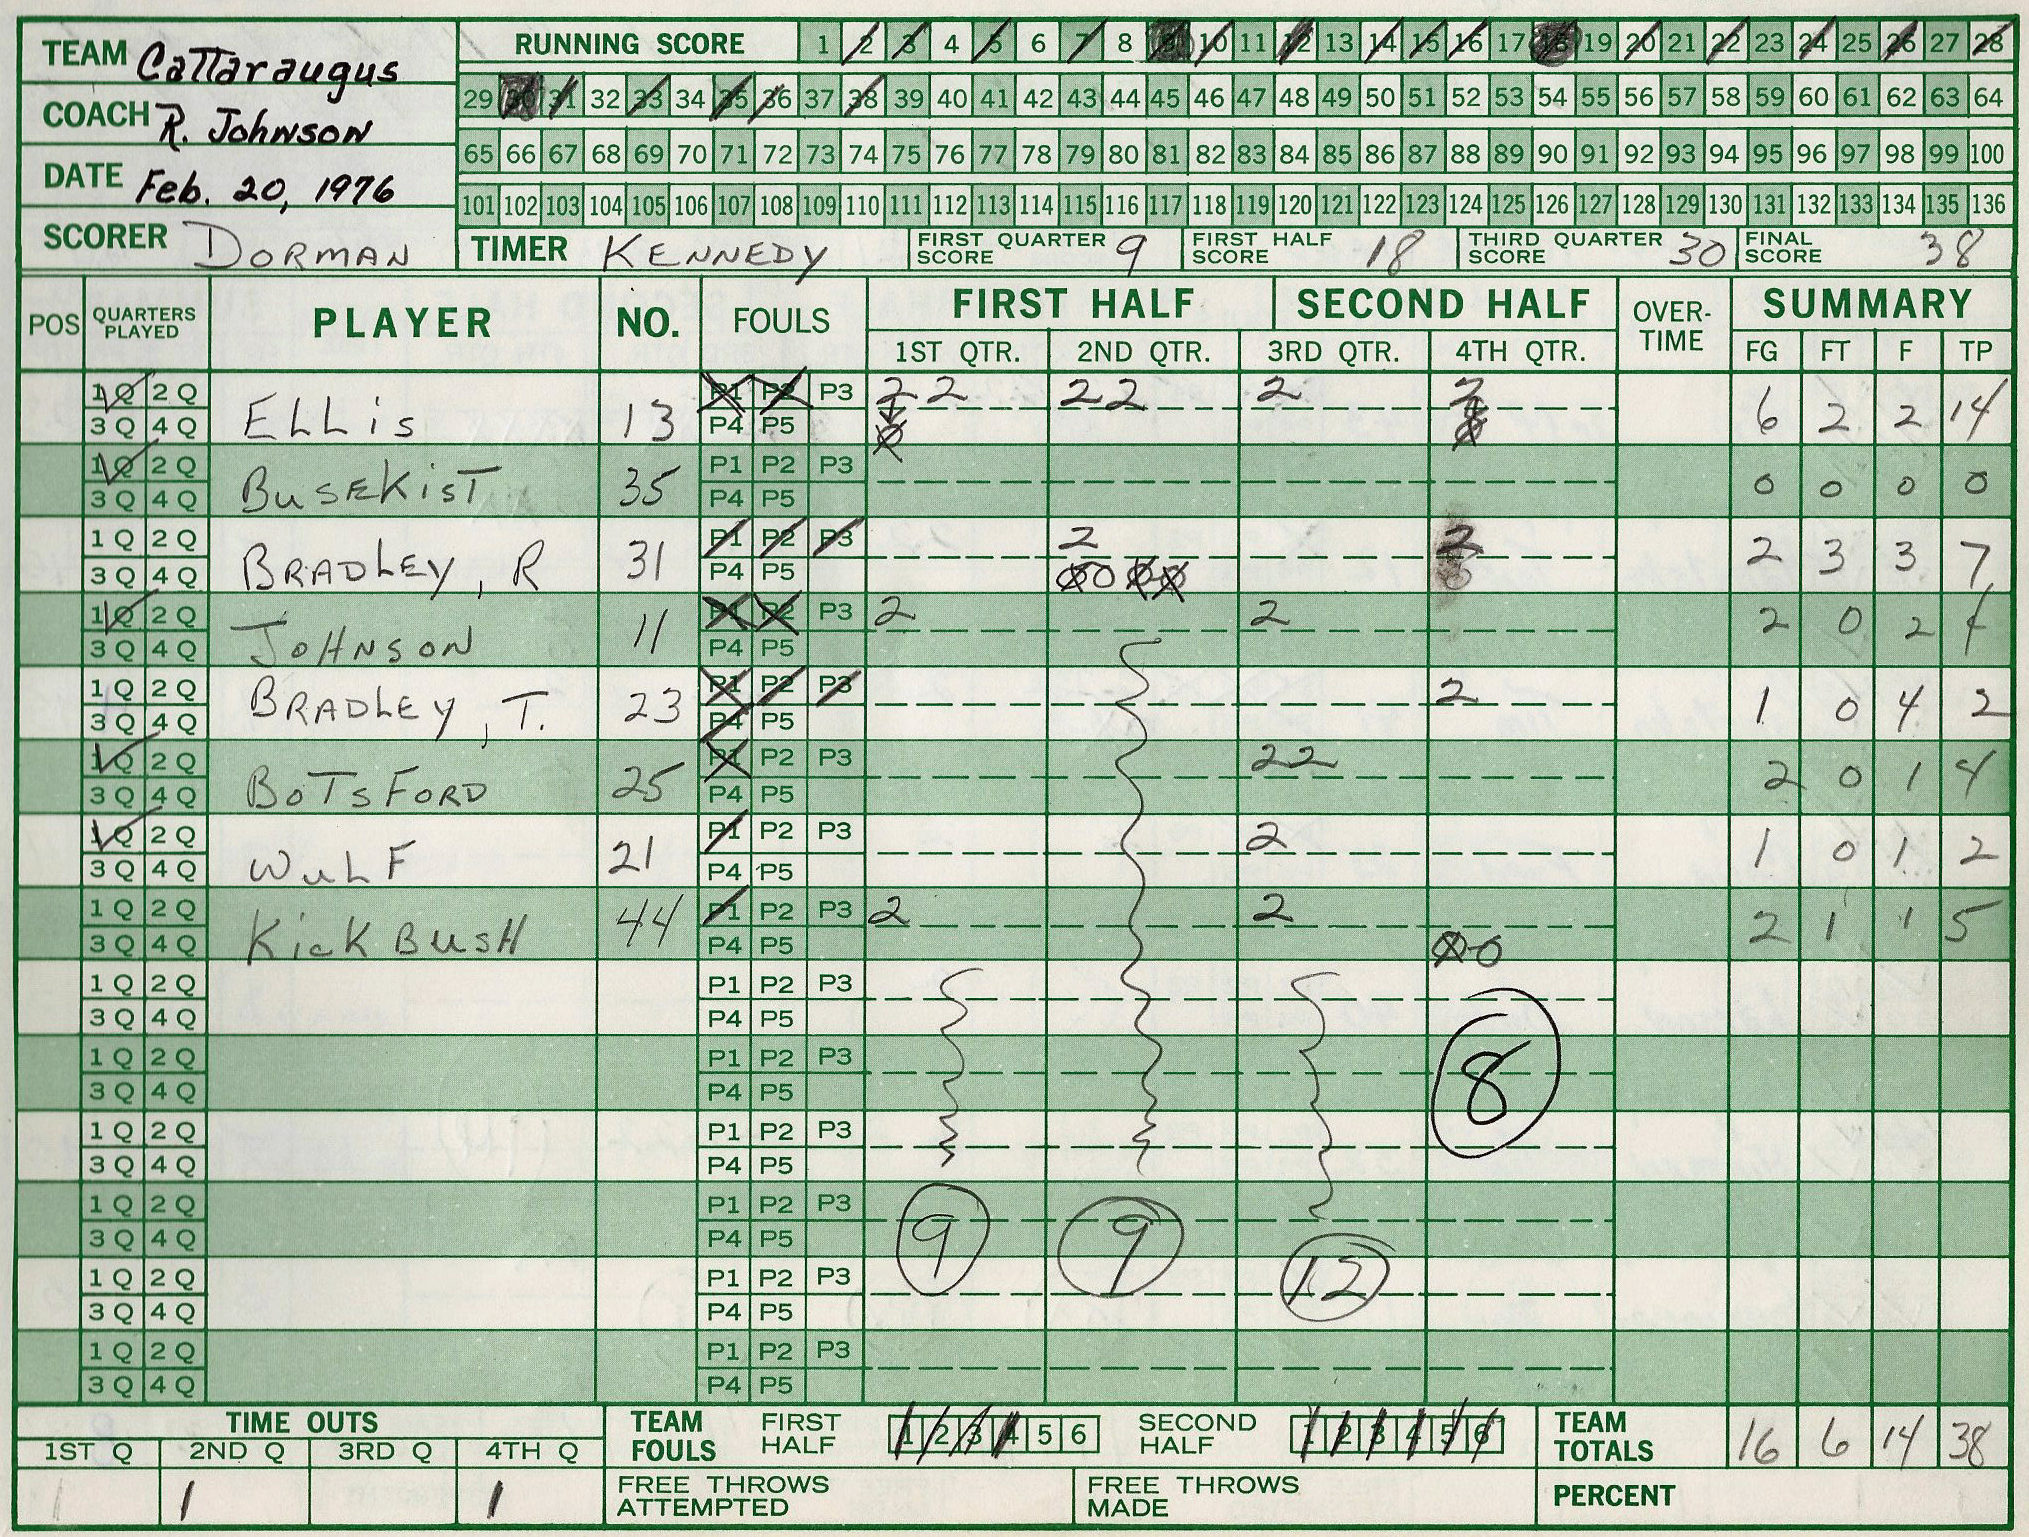 TEAM Cattaraugus
COACH R. Johnson
DATE Feb. 20, 1976
SCORER Dorman
RUNNING SCORE 1 2 3 4 5 6 7 8 9 10 11 12 13 14 15 16 17 18 19 20 21 22 23 24 25 26 27 28
29 30 31 32 33 34 35 36 37 38 39 40 41 42 43 44 45 46 47 48 49 50 51 52 53 54 55 56 57 58 59 60 61 62 63 64
65 66 67 68 69 70 71 72 73 74 75 76 77 78 79 80 81 82 83 84 85 86 87 88 89 90 91 92 93 94 95 96 97 98 99 100
101 102 103 104 105 106 107 108 109 110 111 112 113 114 115 116 117 118 119 120 121 122 123 124 125 126 127 128 129 130 131 132 133 134 135 136
TIMER Kennedy FIRST QUARTER SCORE 9 FIRST HALF SCORE 18 THIRD QUARTER SCORE 30 FINAL SCORE 38
POS QUARTERS PLAYED PLAYER NO. FOULS FIRST HALF SECOND HALF OVER-TIME SUMMARY
1ST QTR. 2ND QTR. 3RD QTR. 4TH QTR. FG FT F TP
1 Q 2 Q P1 P2 P3 2 2 2 2 2 2
3 Q 4 Q ELLis 13 P4 P5 6 2 2 14
1 Q 2 Q P1 P2 P3
3 Q 4 Q BusekisT 35 P4 P5 0 0 0 0
1 Q 2 Q P1 P2 P3 2 2
3 Q 4 Q BRADLEY, R 31 P4 P5 2 3 3 7
1 Q 2 Q P1 P2 P3 2 2
3 Q 4 Q JOHNSON 11 P4 P5 2 0 2 4
1 Q 2 Q P1 P2 P3 2
3 Q 4 Q BRADLEY, T. 23 P4 P5 1 0 4 2
1 Q 2 Q P1 P2 P3 2 2
3 Q 4 Q BoTsFORD 25 P4 P5 2 0 1 4
1 Q 2 Q P1 P2 P3 2
3 Q 4 Q WuLF 21 P4 P5 1 0 1 2
1 Q 2 Q P1 P2 P3 2 2
3 Q 4 Q KickBusH 44 P4 P5 2 1 1 5
1 Q 2 Q P1 P2 P3
3 Q 4 Q P4 P5
1 Q 2 Q P1 P2 P3 8
3 Q 4 Q P4 P5
1 Q 2 Q P1 P2 P3
3 Q 4 Q P4 P5
1 Q 2 Q P1 P2 P3
3 Q 4 Q P4 P5 9 9
1 Q 2 Q P1 P2 P3 12
3 Q 4 Q P4 P5
1 Q 2 Q P1 P2 P3
3 Q 4 Q P4 P5
TIME OUTS
1ST Q 2ND Q 3RD Q 4TH Q
1 1 1
TEAM FOULS FIRST HALF 1 2 3 4 5 6 SECOND HALF 1 2 3 4 5 6
TEAM TOTALS 16 6 14 38
FREE THROWS ATTEMPTED FREE THROWS MADE PERCENT